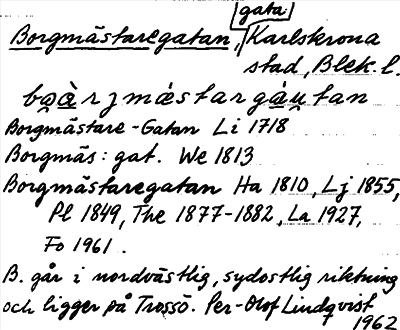 gata
Borgmästaregatan, Karlskrona
stad, Blek. l.
bo̯àrjmästargáu̯tan
Borgmästare-Gatan Li 1718
Borgmäs: gat. We 1813
Borgmästaregatan Ha 1810, Lj 1855,
Pl 1849, The 1877-1882, La 1927,
Fo 1961.
B. går i nordvästlig, sydostlig riktning
och ligger på Trossö. Per-Olof Lindqvist
1962